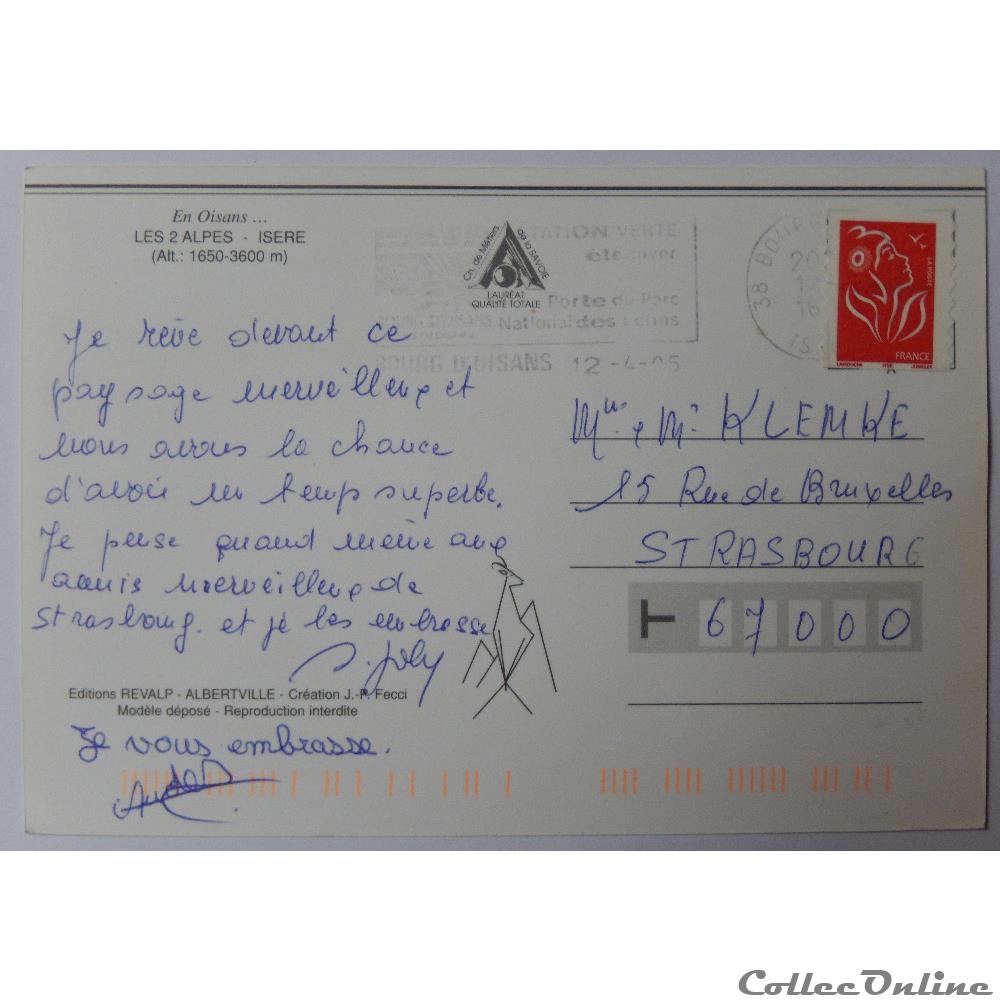 En Oisans ...
LES 2 ALPES - ISERE
(Alt.: 1650-3600 m)
Ch. de Métiers de la SAVOIE
LAURÉAT
QUALITÉ TOTALE
STATION VERTE
été hiver
Porte du Parc
National des Ecrins
BOURG D'OISANS 12-4-05
38 BOURG
LA POSTE
FRANCE
Je rêve devant ce
paysage merveilleux et
nous avons la chance
d'avoir un temps superbe.
Je pense quand même aux
amis merveilleux de
Strasbourg. et je les embrasse
S. Joly
Editions REVALP - ALBERTVILLE - Création J.-P. Fecci
Modèle déposé - Reproduction interdite
Je vous embrasse.
KLEMKE
15 Rue de Bruxelles
STRASBOURG
T 67000
CollecOnline